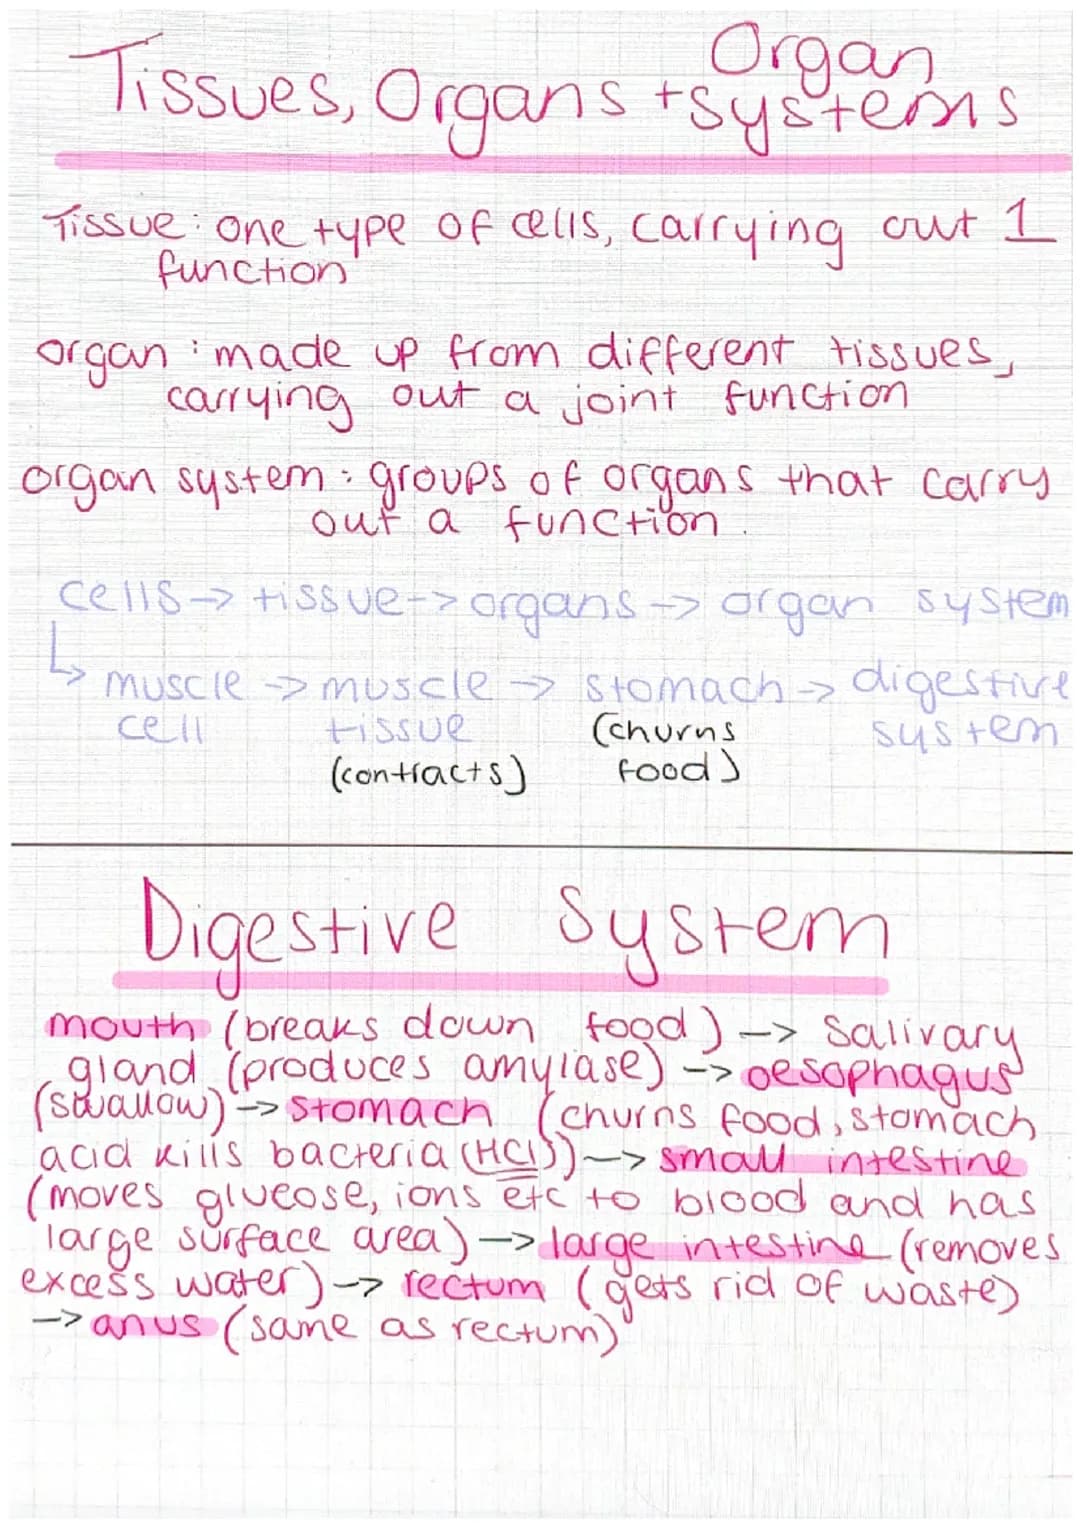 Tissues, Organs + Organ Systems
Tissue: one type of cells, carrying out 1
function
organ: made up from different tissues,
carrying out a joint function
organ system: groups of organs that carry
out a function.
cells -> tissue -> organs -> organ system
↳ muscle -> muscle -> stomach -> digestive
cell tissue (churns system
(contracts) food)
Digestive System
mouth (breaks down food) -> Salivary
gland (produces amylase) -> oesophagus
(swallow) -> stomach (churns food, stomach
acid kills bacteria (HCl)) -> small intestine
(moves glucose, ions etc to blood and has
large surface area) -> large intestine (removes
excess water) -> rectum (gets rid of waste)
-> anus (same as rectum)